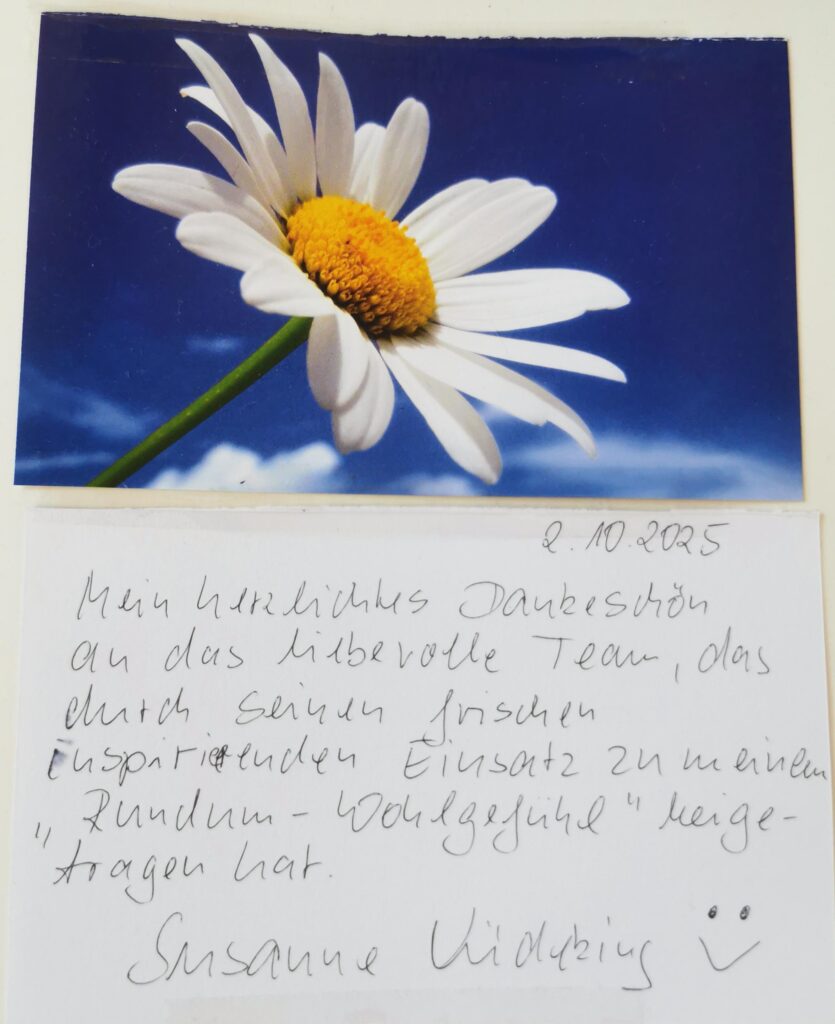 2.10.2025
Mein herzlichtes Dankeschön
an das liebevolle Team, das
durch seinen frischen
inspirierenden Einsatz zu meinem
„Rundum-Wohlgefühl" beige-
tragen hat.
Susanne